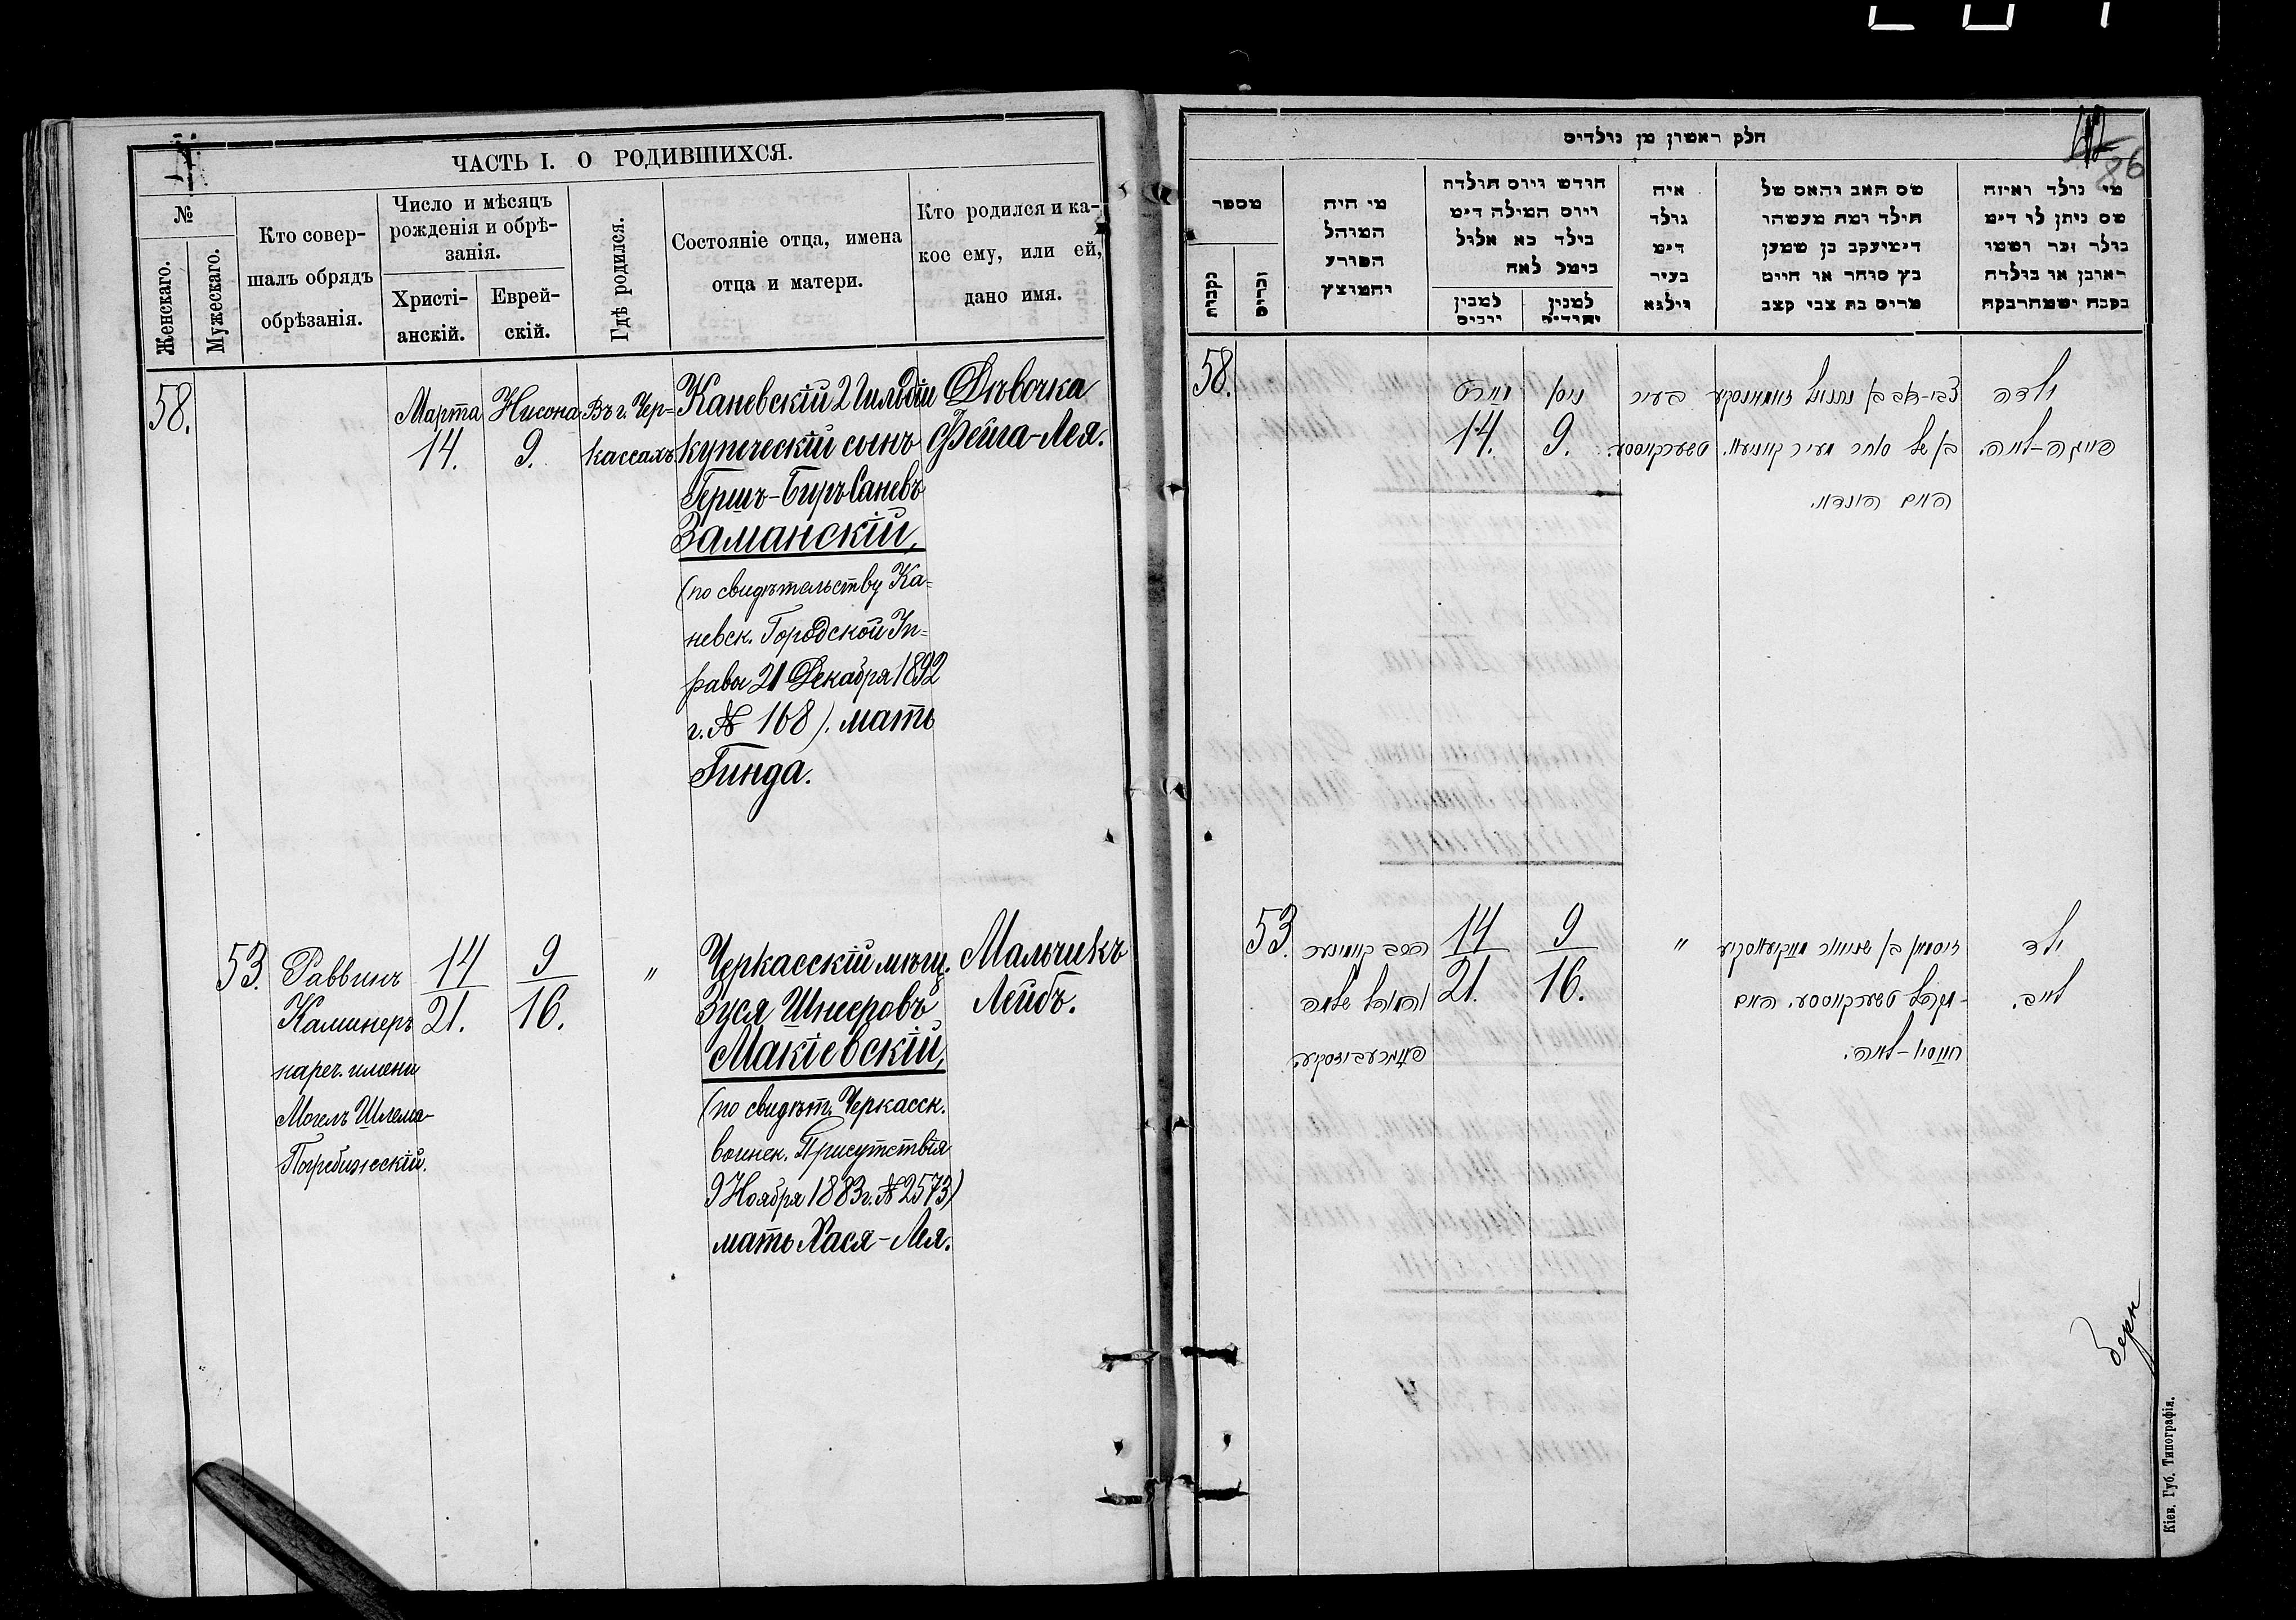 ЧАСТЬ I. О РОДИВШИХСЯ.
№
Женскаго.
Мужескаго.
Кто совер-
шалъ обрядъ
обрѣзанія.
Число и мѣсяцъ
рожденія и обрѣ-
занія.
Христі-
анскій.
Еврей-
скій.
Гдѣ родился.
Состояніе отца, имена
отца и матери.
Кто родился и ка-
кое ему, или ей,
дано имя.
58.
Марта
14.
Нисона
9.
Въ г. Чер-
кассахъ
Каневскій 2 Гильдіи
купеческій сынъ
Гершъ-Беръ Саневъ
Заманскій,
(по свидѣтельству Ка-
невск. Городской Уп-
равы 21 Декабря 1892
г. № 168). мать
Гинда.
Дѣвочка
Фейга-Лея.
53.
Раввинъ
Каминеръ
нареч. имени
Могелъ Шлема
Погребижескій.
14
21.
9
16.
"
Черкасскій мѣщ.
Зуся Шнееровъ
Макіевскій,
(по свидѣт. Черкасск.
воинск. Присутствія
9 Ноября 1883 г. № 2573)
мать Хася-Лея.
Мальчикъ
Лейбъ.
חלק ראשון מן נולדים
86
מספר
נקבות
זכרים
מי היה
המוהל
הפורע
והמוצץ
חודש ויום תולדת
ויום המילה דימ
בילד כא אלול
נימל לאח
למנין
יוניס
למנין
יהודיס
איה
נולד
דימ
בעיר
ווילנא
שם האב והאם של
הילד ומה מעשהו
דימיעקב בן שמען
כץ סוחר או חיים
מרים בת צבי קצב
מי נולד ואיזה
שם ניתן לו דימ
נולד זכר ושמו
ראובן או נולדה
נקבה ושמה רבקה
58.
מארט
14.
ניסן
9.
בעיר
טשערקאססע.
צבי-דוב בן
בן של סוחר מעיר קאניעוו.
האם הינדא.
ילדה
פייגה-לאה.
53.
הרב קאמינער
והמוהל שלמה
14
21.
9
16.
"
זיסמאן בן שניאור מאקיעווסקיע
מקהל טשערקאססע. האם
חאסיא-לאה.
ילד
ליב.
Кіев. Губ. Типографія.